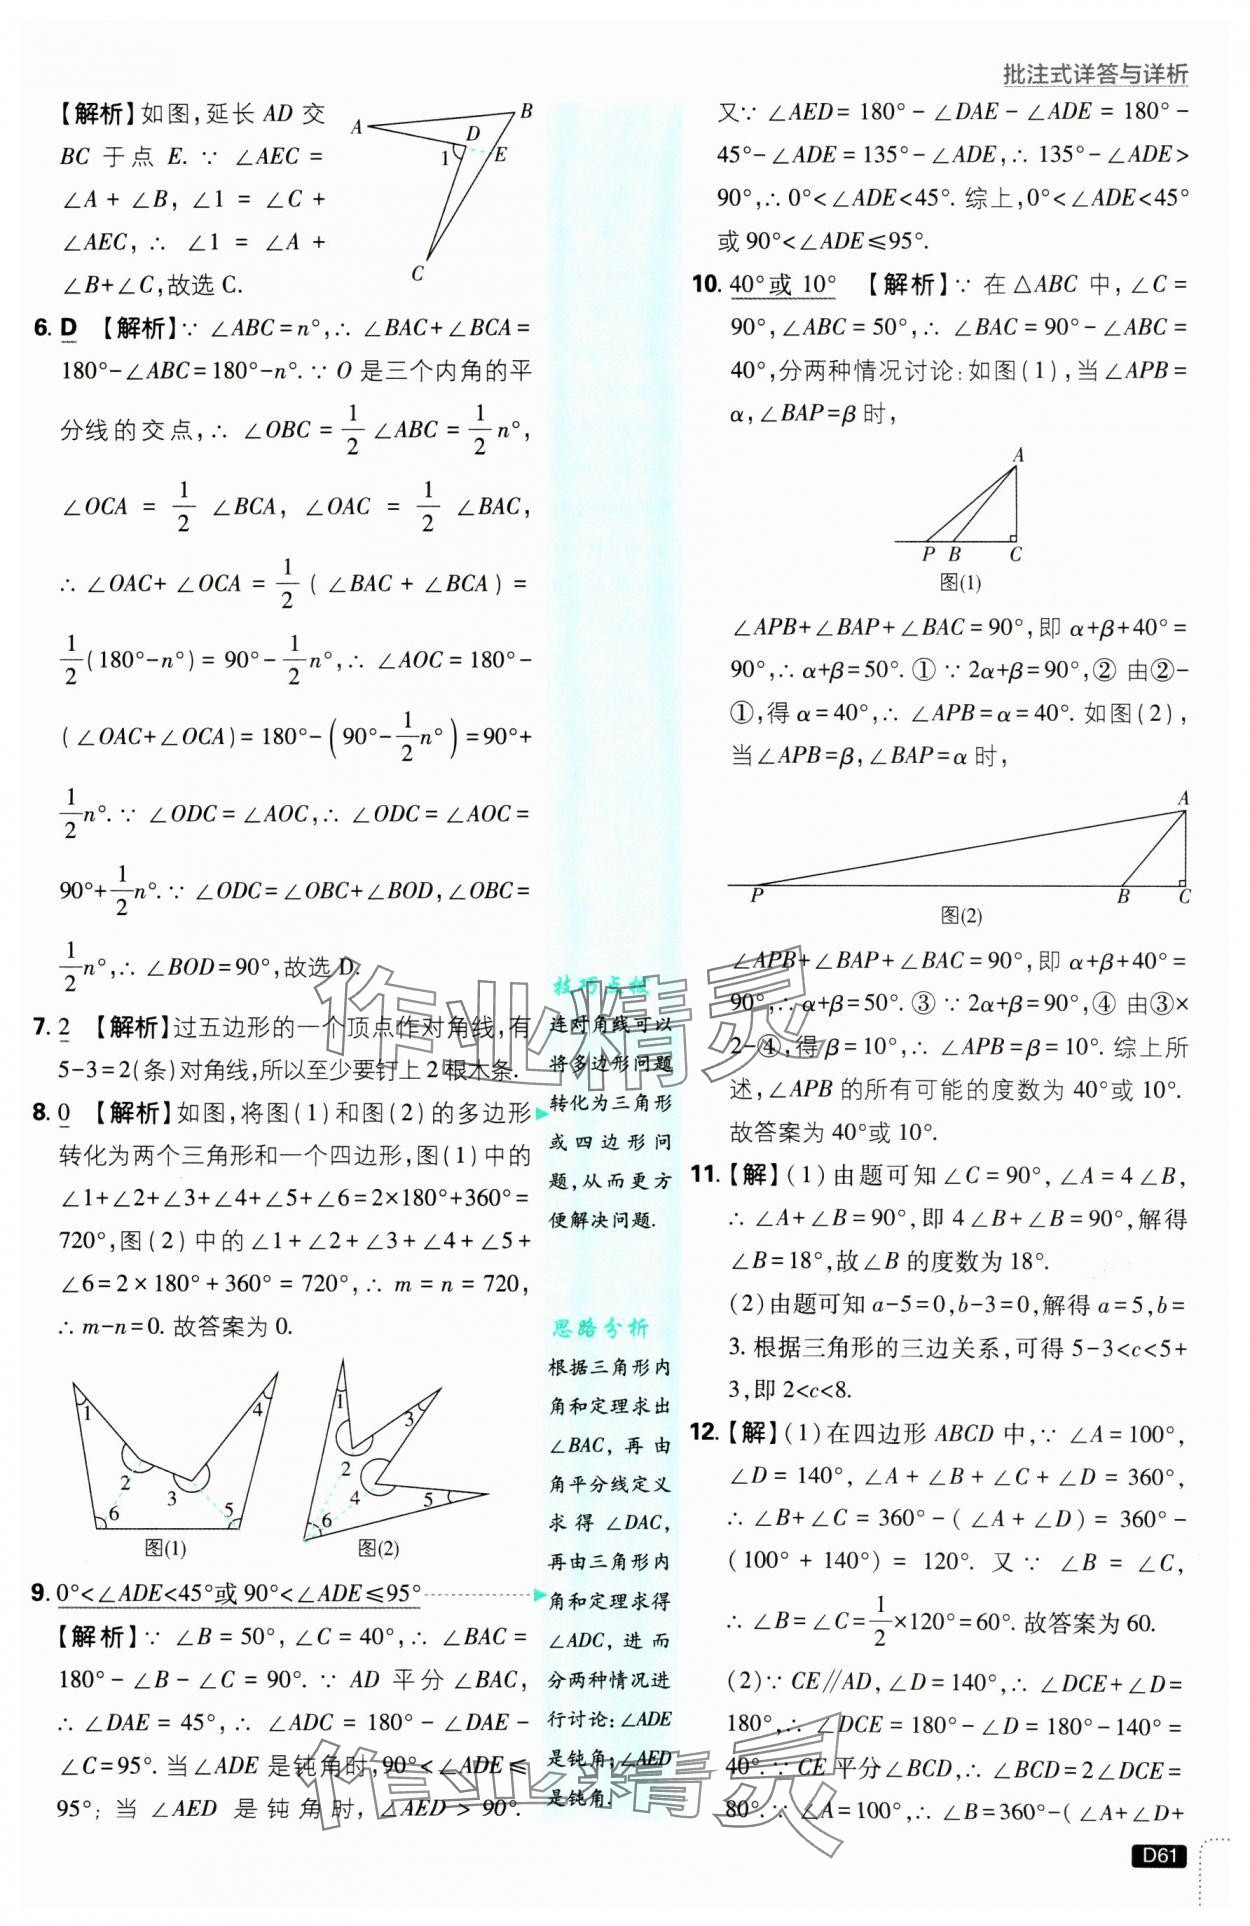 批注式详答与详析
【解析】如图,延长 AD 交
BC 于点 E. ∵ ∠AEC =
∠A + ∠B, ∠1 = ∠C +
∠AEC, ∴ ∠1 = ∠A +
∠B+∠C,故选 C.
A
B
D
1
E
C
6. D 【解析】∵ ∠ABC=n°,∴ ∠BAC+∠BCA=
180°-∠ABC=180°-n°.∵ O 是三个内角的平
分线的交点,∴ ∠OBC=1/2∠ABC=1/2n°,
∠OCA = 1/2 ∠BCA, ∠OAC = 1/2 ∠BAC,
∴ ∠OAC+ ∠OCA = 1/2 ( ∠BAC + ∠BCA) =
1/2(180°-n°)= 90°-1/2n°,∴ ∠AOC=180°-
(∠OAC+∠OCA)=180°-(90°-1/2n°)=90°+
1/2n°.∵ ∠ODC=∠AOC,∴ ∠ODC=∠AOC=
90°+1/2n°.∵ ∠ODC=∠OBC+∠BOD,∠OBC=
1/2n°,∴ ∠BOD=90°,故选 D.
7. 2 【解析】过五边形的一个顶点作对角线,有
5-3=2(条)对角线,所以至少要钉上 2 根木条.
8. 0 【解析】如图,将图(1)和图(2)的多边形
转化为两个三角形和一个四边形,图(1)中的
∠1+∠2+∠3+∠4+∠5+∠6=2×180°+360°=
720°,图(2)中的∠1+∠2+∠3+∠4+∠5+
∠6=2×180°+360°=720°,∴ m=n=720,
∴ m-n=0. 故答案为 0.
1
4
2
3
6
5
图(1)
1
3
2
4
5
6
图(2)
9. 0°<∠ADE<45°或 90°<∠ADE≤95°
【解析】∵ ∠B=50°,∠C=40°,∴ ∠BAC=
180°-∠B-∠C=90°.∵ AD 平分∠BAC,
∴ ∠DAE=45°,∴ ∠ADC=180°-∠DAE-
∠C=95°. 当∠ADE 是钝角时,90°<∠ADE≤
95°; 当 ∠AED 是钝角时, ∠AED > 90°.
技巧点拨
连对角线可以
将多边形问题
转化为三角形
或四边形问
题,从而更方
便解决问题.
思路分析
根据三角形内
角和定理求出
∠BAC, 再由
角平分线定义
求得 ∠DAC,
再由三角形内
角和定理求得
∠ADC, 进而
分两种情况进
行讨论:∠ADE
是钝角;∠AED
是钝角.
又∵ ∠AED=180°-∠DAE-∠ADE=180°-
45°-∠ADE=135°-∠ADE,∴ 135°-∠ADE>
90°,∴ 0°<∠ADE<45°. 综上,0°<∠ADE<45°
或 90°<∠ADE≤95°.
10. 40°或 10° 【解析】∵ 在△ABC 中,∠C=
90°,∠ABC=50°,∴ ∠BAC=90°-∠ABC=
40°,分两种情况讨论:如图(1),当∠APB=
α,∠BAP=β 时,
A
P B C
图(1)
∠APB+∠BAP+∠BAC=90°,即 α+β+40°=
90°,∴ α+β=50°. ① ∵ 2α+β=90°,② 由②-
①,得 α=40°,∴ ∠APB=α=40°. 如图(2),
当∠APB=β,∠BAP=α 时,
A
P B C
图(2)
∠APB+∠BAP+∠BAC=90°,即 α+β+40°=
90°,∴ α+β=50°. ③ ∵ 2α+β=90°,④ 由③×
2-④,得 β=10°,∴ ∠APB=β=10°. 综上所
述,∠APB 的所有可能的度数为 40°或 10°.
故答案为 40°或 10°.
11.【解】(1)由题可知∠C=90°,∠A=4∠B,
∴ ∠A+∠B=90°,即 4∠B+∠B=90°,解得
∠B=18°,故∠B 的度数为 18°.
(2)由题可知 a-5=0,b-3=0,解得 a=5,b=
3. 根据三角形的三边关系,可得 5-3<c<5+
3,即 2<c<8.
12.【解】(1)在四边形 ABCD 中,∵ ∠A=100°,
∠D=140°, ∠A+∠B+∠C+∠D=360°,
∴ ∠B+∠C=360°-(∠A+∠D)=360°-
(100°+140°)=120°. 又∵ ∠B=∠C,
∴ ∠B=∠C=1/2×120°=60°. 故答案为 60.
(2)∵ CE∥AD,∠D=140°,∴ ∠DCE+∠D=
180°,∴ ∠DCE=180°-∠D=180°-140°=
40°.∵ CE 平分∠BCD,∴ ∠BCD=2∠DCE=
80°.∵ ∠A=100°,∴ ∠B=360°-(∠A+∠D+
D61
作业精灵
作业精灵